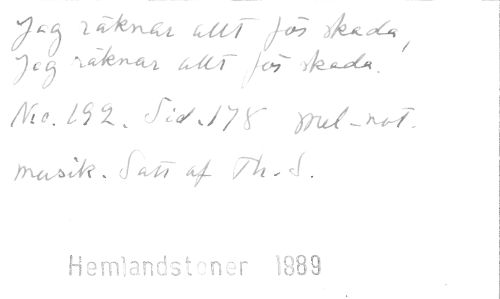 Jag räknar allt för skada,
Jag räknar allt för skada.
No. 192. Sid. 178 mel-not.
musik. Satt af Th. S.
Hemlandstoner 1889